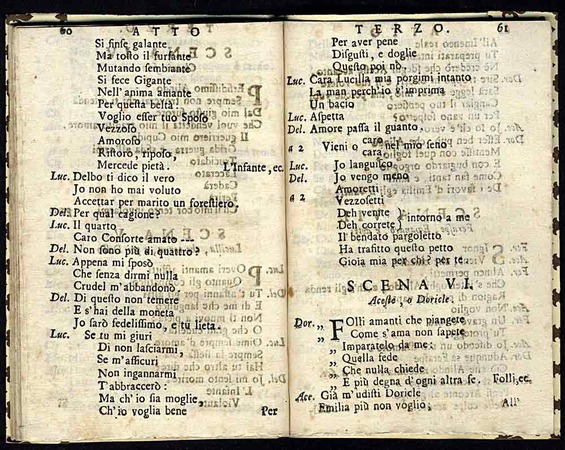 60 ATTO
Si finse galante
Ma tosto il furfante
Mutando sembiante
Si fece Gigante
Nell'anima amante
Per questa beltà.
Voglio esser tuo Sposo
Vezzoso
Amoroso
Ristoro, riposo,
Mercede pietà. L'Infante, ec.
Luc. Delbo ti dico il vero
Jo non ho mai voluto
Accettar per marito un forestiero.
Del. Per qual cagione?
Luc. Il quarto
Caro Consorte amato ---
Del. Non sono più di quattro?
Luc. Appena mi sposò
Che senza dirmi nulla
Crudel m'abbandonò.
Del. Di questo non temere
E s'hai della moneta
Jo sarò fedelissimo, e tù lieta.
Luc. Se tu mi giuri
Di non lasciarmi,
Se m'afficuri
Non ingannarmi
T'abbraccerò:
Ma ch'io sia moglie,
Ch'io voglia bene
Per
TERZO. 61
Per aver pene
Disgusti, e doglie
Questo poi nò.
Luc. Cara Lucilla mia porgimi intanto
La man perch'io g'imprima
Un bacio
Luc. Aspetta
Del. Amore passa il guanto.
a 2 Vieni o caro nel mio seno
cara
Luc. Jo languisco
Del. Jo vengo meno
a 2 Amoretti
Vezzosetti
Deh venite ) intorno a me
Deh correte)
Il bendato pargoletto
Ha trafitto questo petto
Gioia mia per chi? per te.
SCENA VI.
Aceste, e Doricle.
Dor. „ Folli amanti che piangete
„ Come s'ama non sapete
„ Imparatelo da me:
„ Quella fede
„ Che nulla chiede
„ E più degna d'ogni altra fe. Folli, ec.
Ace. Già m'udisti Doricle
Emilia più non voglio;
All'